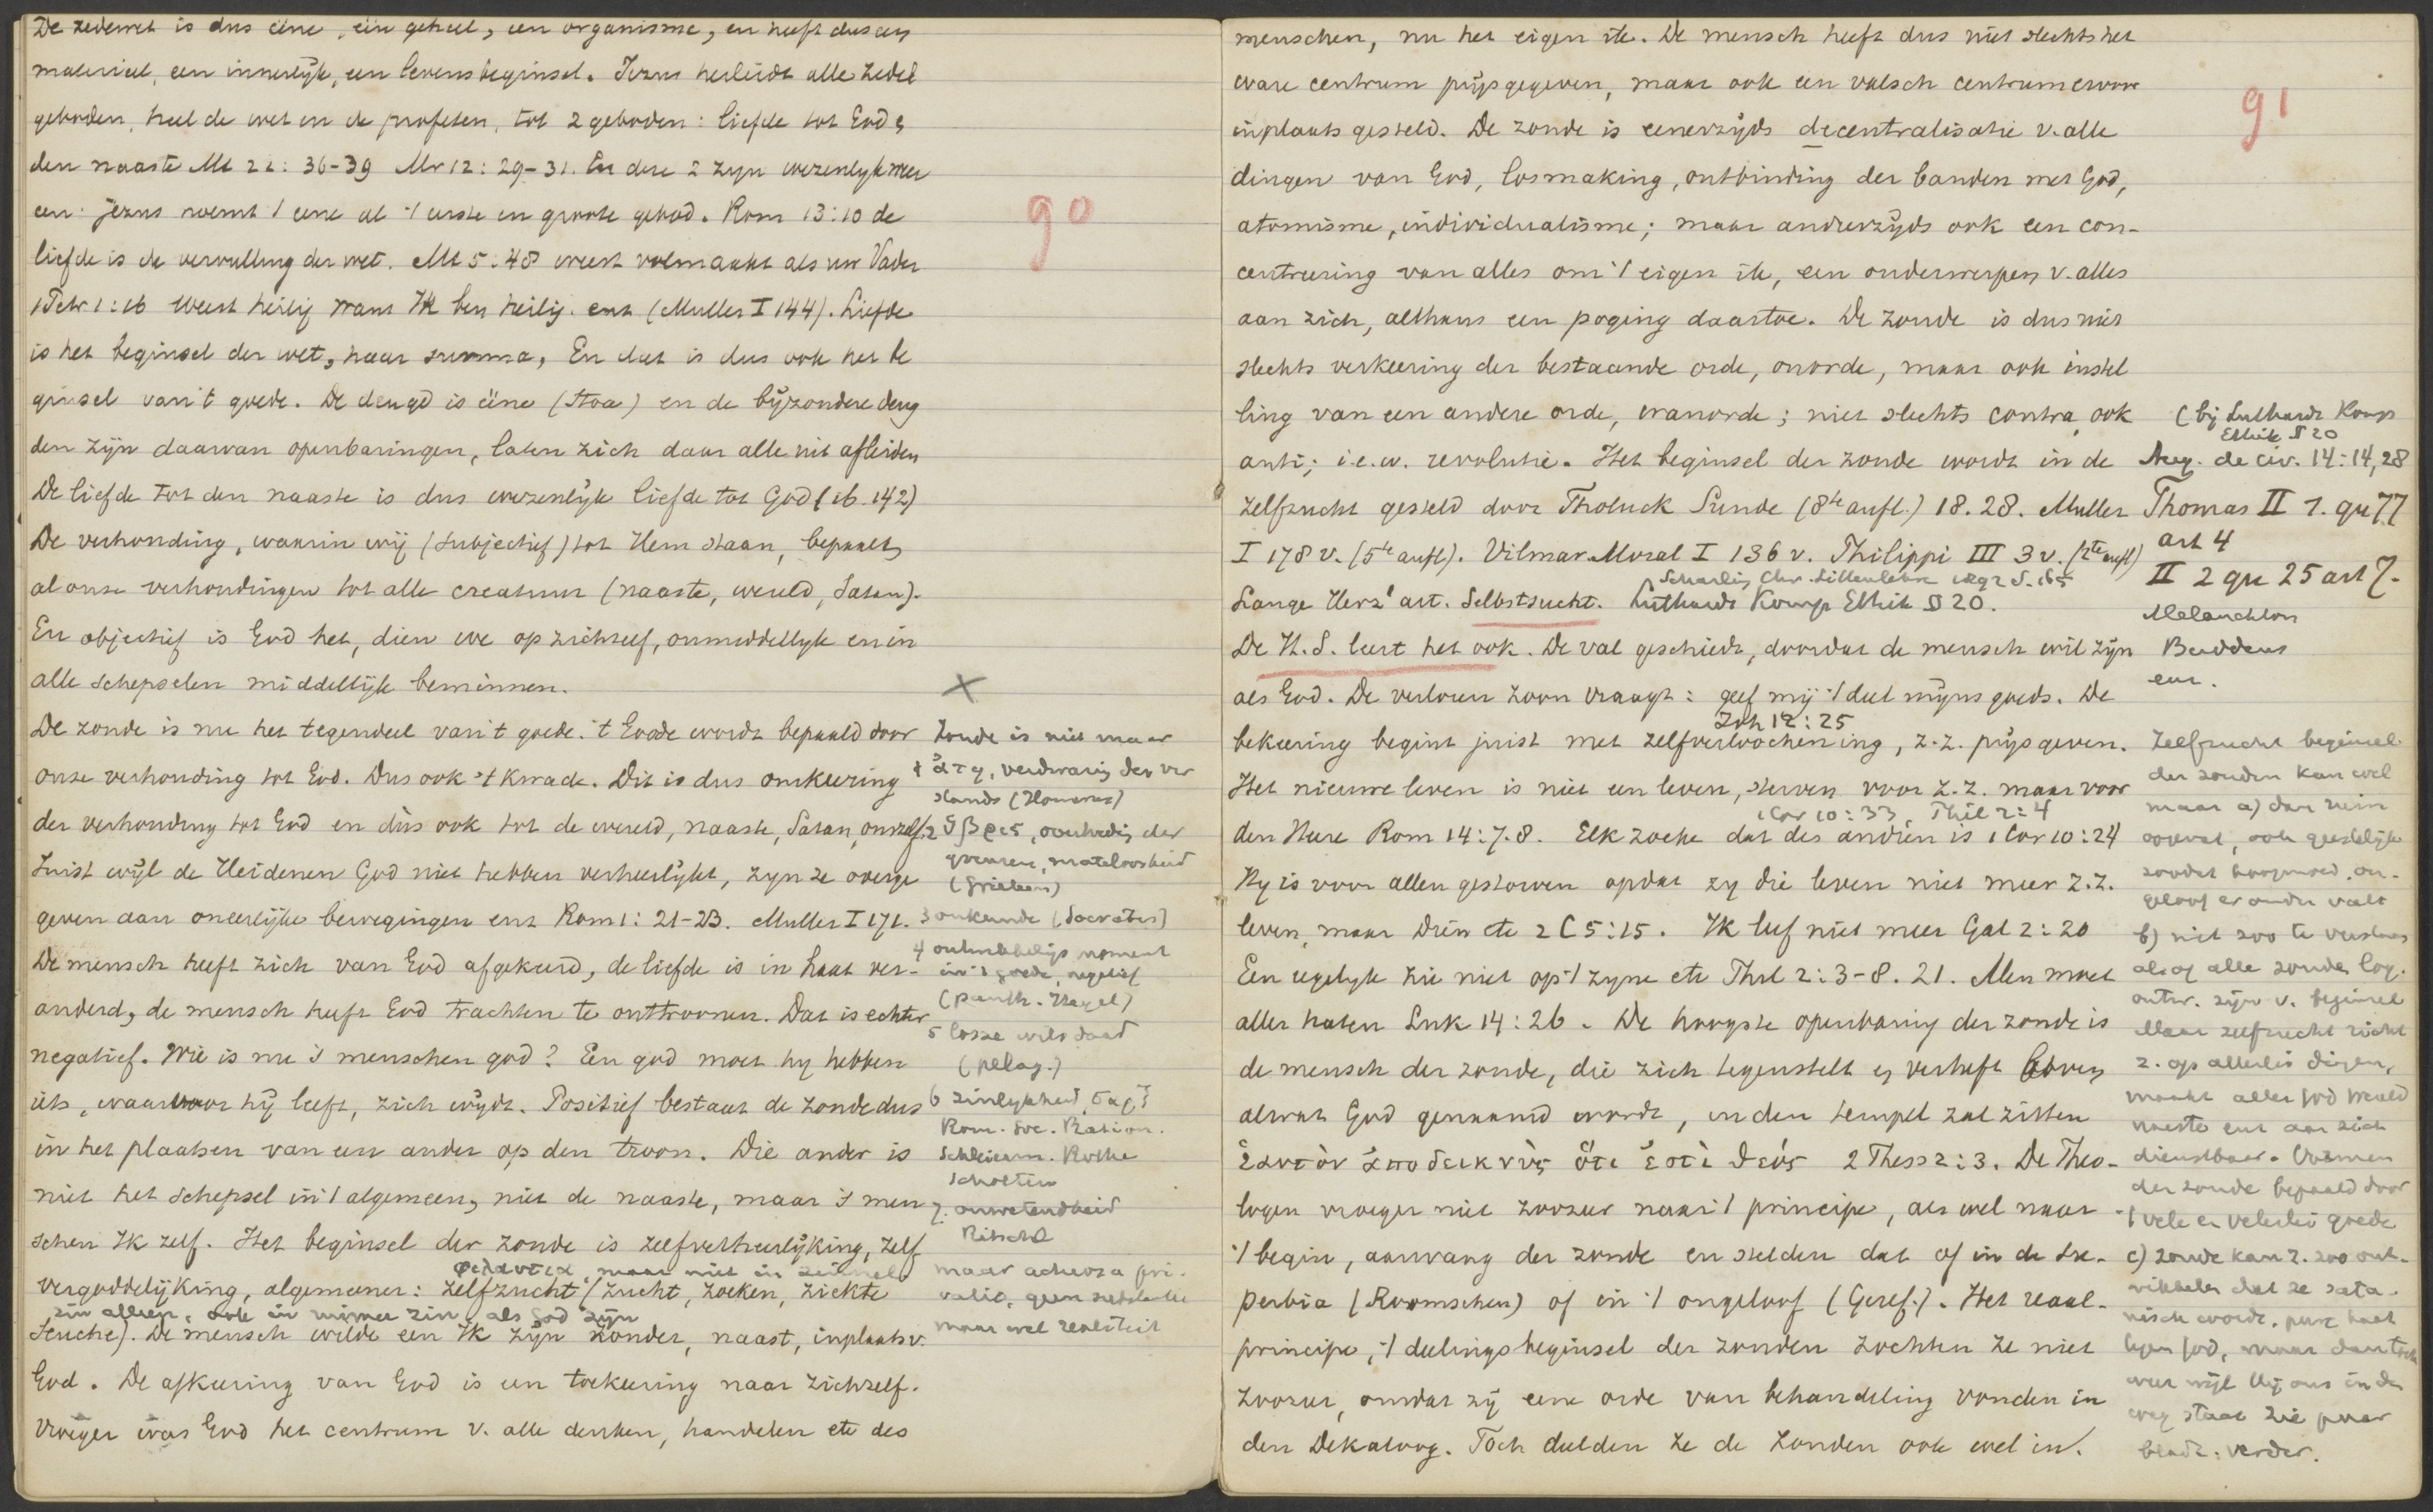 De zedewet is dus ééne, één geheel, een organisme, en heeft dus een
materieel, een innerlijk, een levensbeginsel. Jezus herleidt alle zede
geboden, heel de wet en de profeten, tot 2 geboden: liefde tot God &
den naaste Mt 22:36-39 Mr 12:29-31. En deze 2 zyn wezenlyk weer
een: Jezus noemt 't eene al 't eerste en groote gebod. Rom 13:10 de
liefde is de vervulling der wet. Mt 5:48 weest volmaakt als uw Vader
1 Petr 1:16 Weest heilig want Ik ben heilig. enz (Muller I 144). Liefde
is het beginsel der wet, haar summa, En dat is dus ook het be
ginsel van 't goede. De deugd is ééne (Stoa) en de byzondere deug
den zijn daarvan openbaringen, laten zich daar alle uit afleiden
De liefde tot den naaste is dus wezenlyk liefde tot God (ib. 142)
De verhouding, waarin wij (subjectief) tot Hem staan, bepaalt
al onze verhoudingen tot alle creatuur (naaste, wereld, Satan).
En objectief is God het, dien we op zichzelf, onmiddellyk en in
alle schepselen middellijk beminnen.
De zonde is nu het tegendeel van 't goede. 't Goede wordt bepaald door
onze verhouding tot God. Dus ook 't Kwade. Dit is dus omkeering
der verhouding tot God en dùs ook tot de wereld, naaste, Satan, onszelf.
Juist wyl de Heidenen God niet hebben verheerlykt, zyn ze overge
geven aan oneerlijke bewegingen enz Rom 1:21-23. Muller I 171.
De mensch heeft zich van God afgekeerd, de liefde is in haat ver-
anderd, de mensch heeft God trachten te onttroonen. Dat is echter
negatief. Wie is nu 's menschen god? Een god moet hy hebben
iets, waarvoor hij leeft, zich wydt. Positief bestaat de zonde dus
in het plaatsen van een ander op den troon. Die ander is
niet het schepsel in 't algemeen, niet de naaste, maar 's men
schen Ik zelf. Het beginsel der zonde is zelfverheerlijking, zelf
φιλαυτια, maar niet in zinnel.
vergoddelijking, algemeener: zelfzucht (zucht, zoeken, ziekte
zin alleen, ook in ruimer zin, als God zijn
seuche). De mensch wilde een Ik zijn zonder, naast, inplaats v.
God. De afkeering van God is een toekeering naar zichzelf.
Vroeger was God het centrum v. alle denken, handelen etc des
90
X
Zonde is niet maar
1 ἄτη, verdwazing des ver
stands (Homerus)
2 ὕβρις, overtreding der
grenzen, mateloosheid
(Grieken)
3 onkunde (Socrates)
4 onontbeerlijk moment
in 't goede, negatief
(panth. Hegel)
5 losse wilsdaad
(pelag.)
6 zinlykheid, σαρξ
Rom. Soc. Ration.
Schleierm. Rothe
Scholten
7. onwetendheid
Ritschl
maar actuosa pri-
vatio, geen substantie
maar wel realiteit
menschen, nu het eigen ik. De mensch heeft dus niet slechts het
ware centrum prijsgegeven, maar ook een valsch centrum ervoor
inplaats gesteld. De zonde is eenerzijds decentralisatie v. alle
dingen van God, losmaking, ontbinding der banden met God,
atomisme, individualisme; maar anderzyds ook een con-
centreering van alles om 't eigen ik, een onderwerpen v. alles
aan zich, althans een poging daartoe. De zonde is dus niet
slechts verkeering der bestaande orde, onorde, maar ook instel
ling van een andere orde, wanorde; niet slechts contra, ook
anti; i.e.w. revolutie. Het beginsel der zonde wordt in de
zelfzucht gesteld door Tholuck Sunde (8te aufl.) 18.28. Muller
I 178 v. (5te aufl). Vilmar Moral I 136 v. Philippi III 3 v. (2te aufl)
Scharling Chr. Sittenlehre 1892 S. 165
Lange Herz¹ art. Selbstsucht. Luthardt Komp Ethik § 20.
De H.S. leert het ook. De val geschiedt, doordat de mensch wil zijn
als God. De verloren zoon vraagt: geef mij 't deel mijns goeds. De
Joh 12:25
bekeering begint juist met zelfverloochening, z.z. prijsgeven.
Het nieuwe leven is niet een leven, sterven voor z.z. maar voor
1 Cor 10:33, Phil 2:4
den Heere Rom 14:7.8. Elk zoeke dat des anderen is 1 Cor 10:24
Hy is voor allen gestorven opdat zy die leven niet meer z.z.
leven, maar Dien etc 2 C 5:15. Ik leef niet meer Gal 2:20
Een iegelyk zie niet op 't zyne etc Phil 2:3-8. 21. Men moet
alles haten Luk 14:26. De hoogste openbaring der zonde is
de mensch der zonde, die zich tegenstelt en verheft boven
alwat God genaamd wordt, in den tempel zal zitten
ἑαυτὸν ἀποδεικνὺς ὅτι ἐστὶ θεός 2 Thess 2:3. De Theo-
logen vroegen niet zoozeer naar 't principe, als wel naar
't begin, aanvang der zonde en stelden dat of in de su-
perbia (Roomschen) of in 't ongeloof (Geref.). Het reaal-
principe, 't deelingsbeginsel der zonden zochten ze niet
zoozeer, omdat zij eene orde van behandeling vonden in
den Dekaloog. Toch deelden ze de zonden ook wel in.
91
(bij Luthardt Komp
Ethik § 20
Aug. de civ. 14:14,28
Thomas II 1. qu 77
art 4
II 2 qu 25 art 7.
Melanchton
Buddeus
enz.
Zelfzucht beginsel
der zonden kan wel
maar a) dan ruim
opgevat, ook geestelijke
zonden hoogmoed, on-
geloof er onder valt
b) niet zoo te verstaan
alsof alle zonden log.
ontw. zijn v. beginsel
Maar zelfzucht richt
z. op allerlei dingen,
maakt alles God wereld
naaste enz aan zich
dienstbaar. Vormen
der zonde bepaald door
't vele en velerlei goede
c) zonde kan z. zoo ont-
wikkelen dat ze sata-
nisch wordt, pure haat
tegen God, maar dan toch
weer wijl Hij ons in den
weg staat zie paar
bladz. verder.